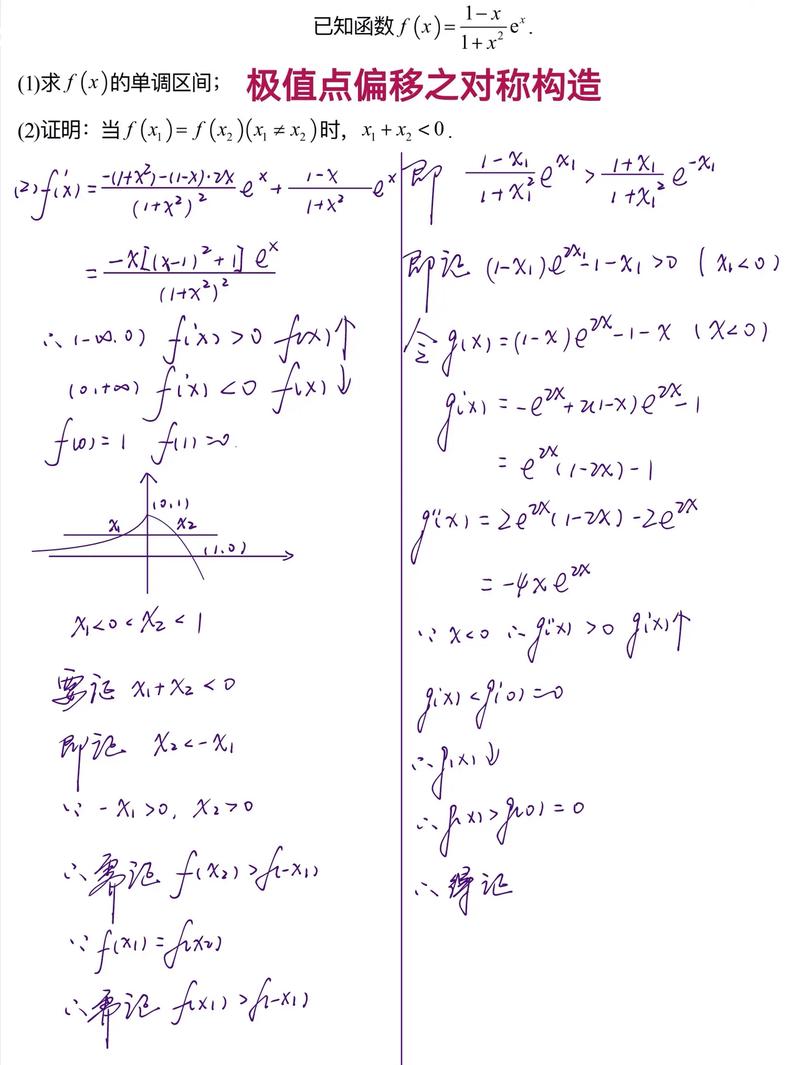 已知函数 f(x)=\frac{1-x}{1+x^2}e^x.
(1)求 f(x) 的单调区间； 极值点偏移之对称构造
(2)证明：当 f(x_1)=f(x_2)(x_1≠x_2) 时，x_1+x_2<0.
(2) f'(x)=\frac{-(1+x^2)-(1-x)·2x}{(1+x^2)^2}e^x+\frac{1-x}{1+x^2}e^x
=\frac{-x[(x-1)^2+1]e^x}{(1+x^2)^2}
∴(-∞.0) f'(x)>0 f(x)↑
(0,+∞) f'(x)<0 f(x)↓
f(0)=1 f(1)=0.
(0,1)
x_1 x_2
(1,0)
x_1<0<x_2<1
要证 x_1+x_2<0
即证 x_2<-x_1
∵ -x_1>0, x_2>0
∴需证 f(x_2)>f(-x_1)
∵f(x_1)=f(x_2)
∴需证 f(x_1)>f(-x_1)
即 \frac{1-x_1}{1+x_1^2}e^{x_1}>\frac{1+x_1}{1+x_1^2}e^{-x_1}
即证 (1-x_1)e^{2x_1}-1-x_1>0 (x_1<0)
令 g(x)=(1-x)e^{2x}-1-x (x<0)
g'(x)=-e^{2x}+2(1-x)e^{2x}-1
=e^{2x}(1-2x)-1
g''(x)=2e^{2x}(1-2x)-2e^{2x}
=-4xe^{2x}
∵x<0 ∴g''(x)>0 g'(x)↑
g'(x)<g'(0)=0
∴g(x)↓
∴g(x)>g(0)=0
∴得证